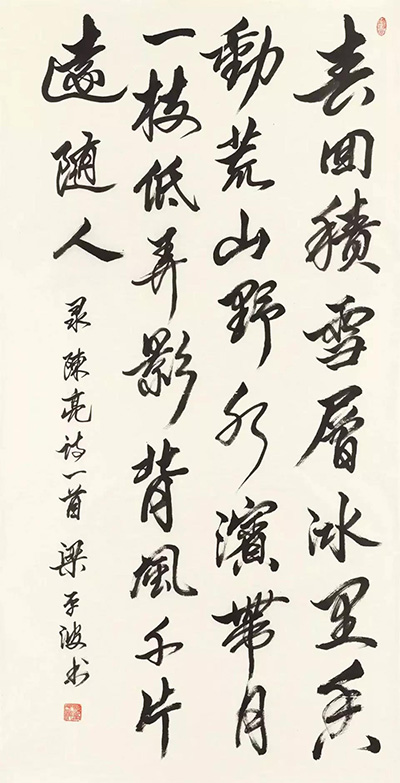 春回積雪層冰里香
動荒山野水濱帶月
一枝低弄影背風千片
遠隨人
录陳亮诗一首 梁平波书